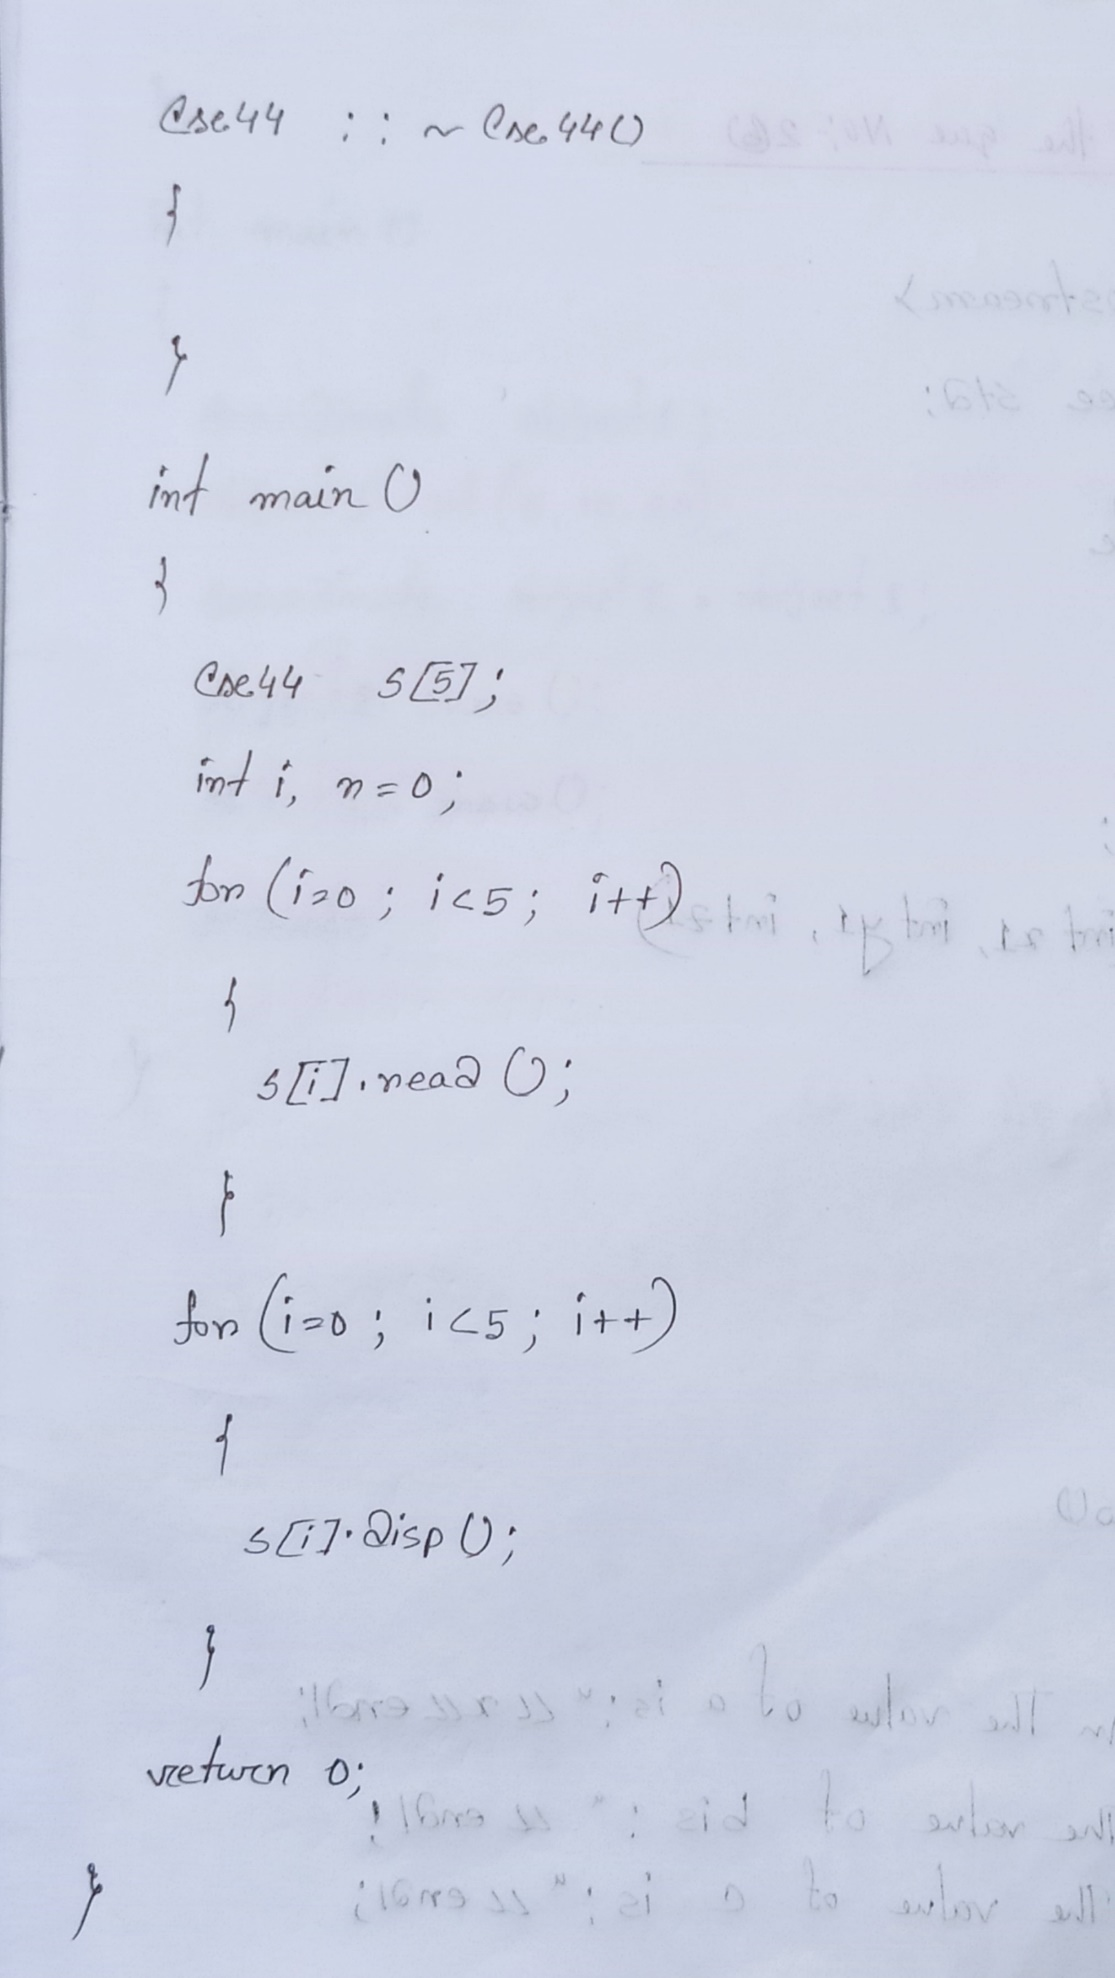 Cse44 :: ~ Cse44()
{
}
int main ()
{
Cse44 s[5];
int i, n=0;
for (i=0 ; i<5; i++)
{
s[i].read ();
}
for (i=0 ; i<5; i++)
{
s[i].disp ();
}
return 0;
}